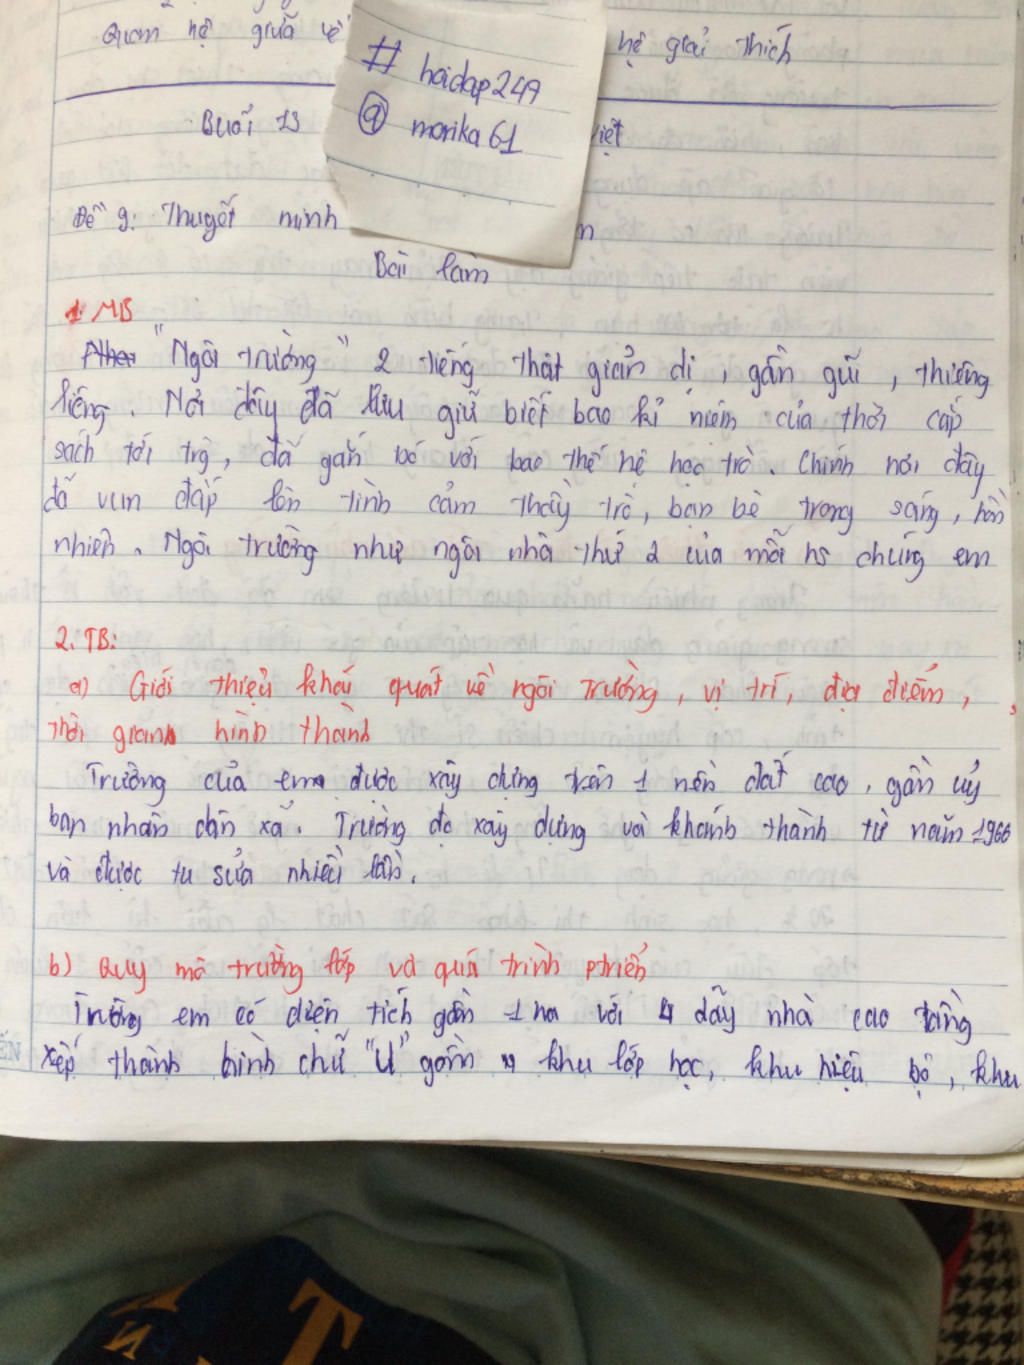 Quan hệ giữa về hệ giải thích
# hoidap249
@ morika61
Buổi 13 việt
Đề 9: Thuyết minh n
Bài làm
1. MB
"Ngôi trường" 2 tiếng thật giản dị, gần gũi, thiêng
liêng. Nơi đây đã lưu giữ biết bao kỉ niệm của thời cắp
sách tới trg, đã gắn bó với bao thế hệ học trò. Chính nơi đây
đã vun đắp lên tình cảm thầy trò, bạn bè trong sáng, hồn
nhiên. Ngôi trường như ngôi nhà thứ 2 của mỗi hs chúng em
2. TB:
a) Giới thiệu khái quát về ngôi trường, vị trí, địa điểm,
thời gian hình thành
Trường của em được xây dựng trên 1 nền đất cao, gần uỷ
ban nhân dân xã. Trường đc xây dựng và khánh thành từ năm 1966
và được tu sửa nhiều lần.
b) Quy mô trường lớp và quá trình ptriển
Trường em có diện tích gần 1 ha với 4 dãy nhà cao tầng
xếp thành hình chữ "U" gồm khu lớp học, khu hiệu bộ, khu